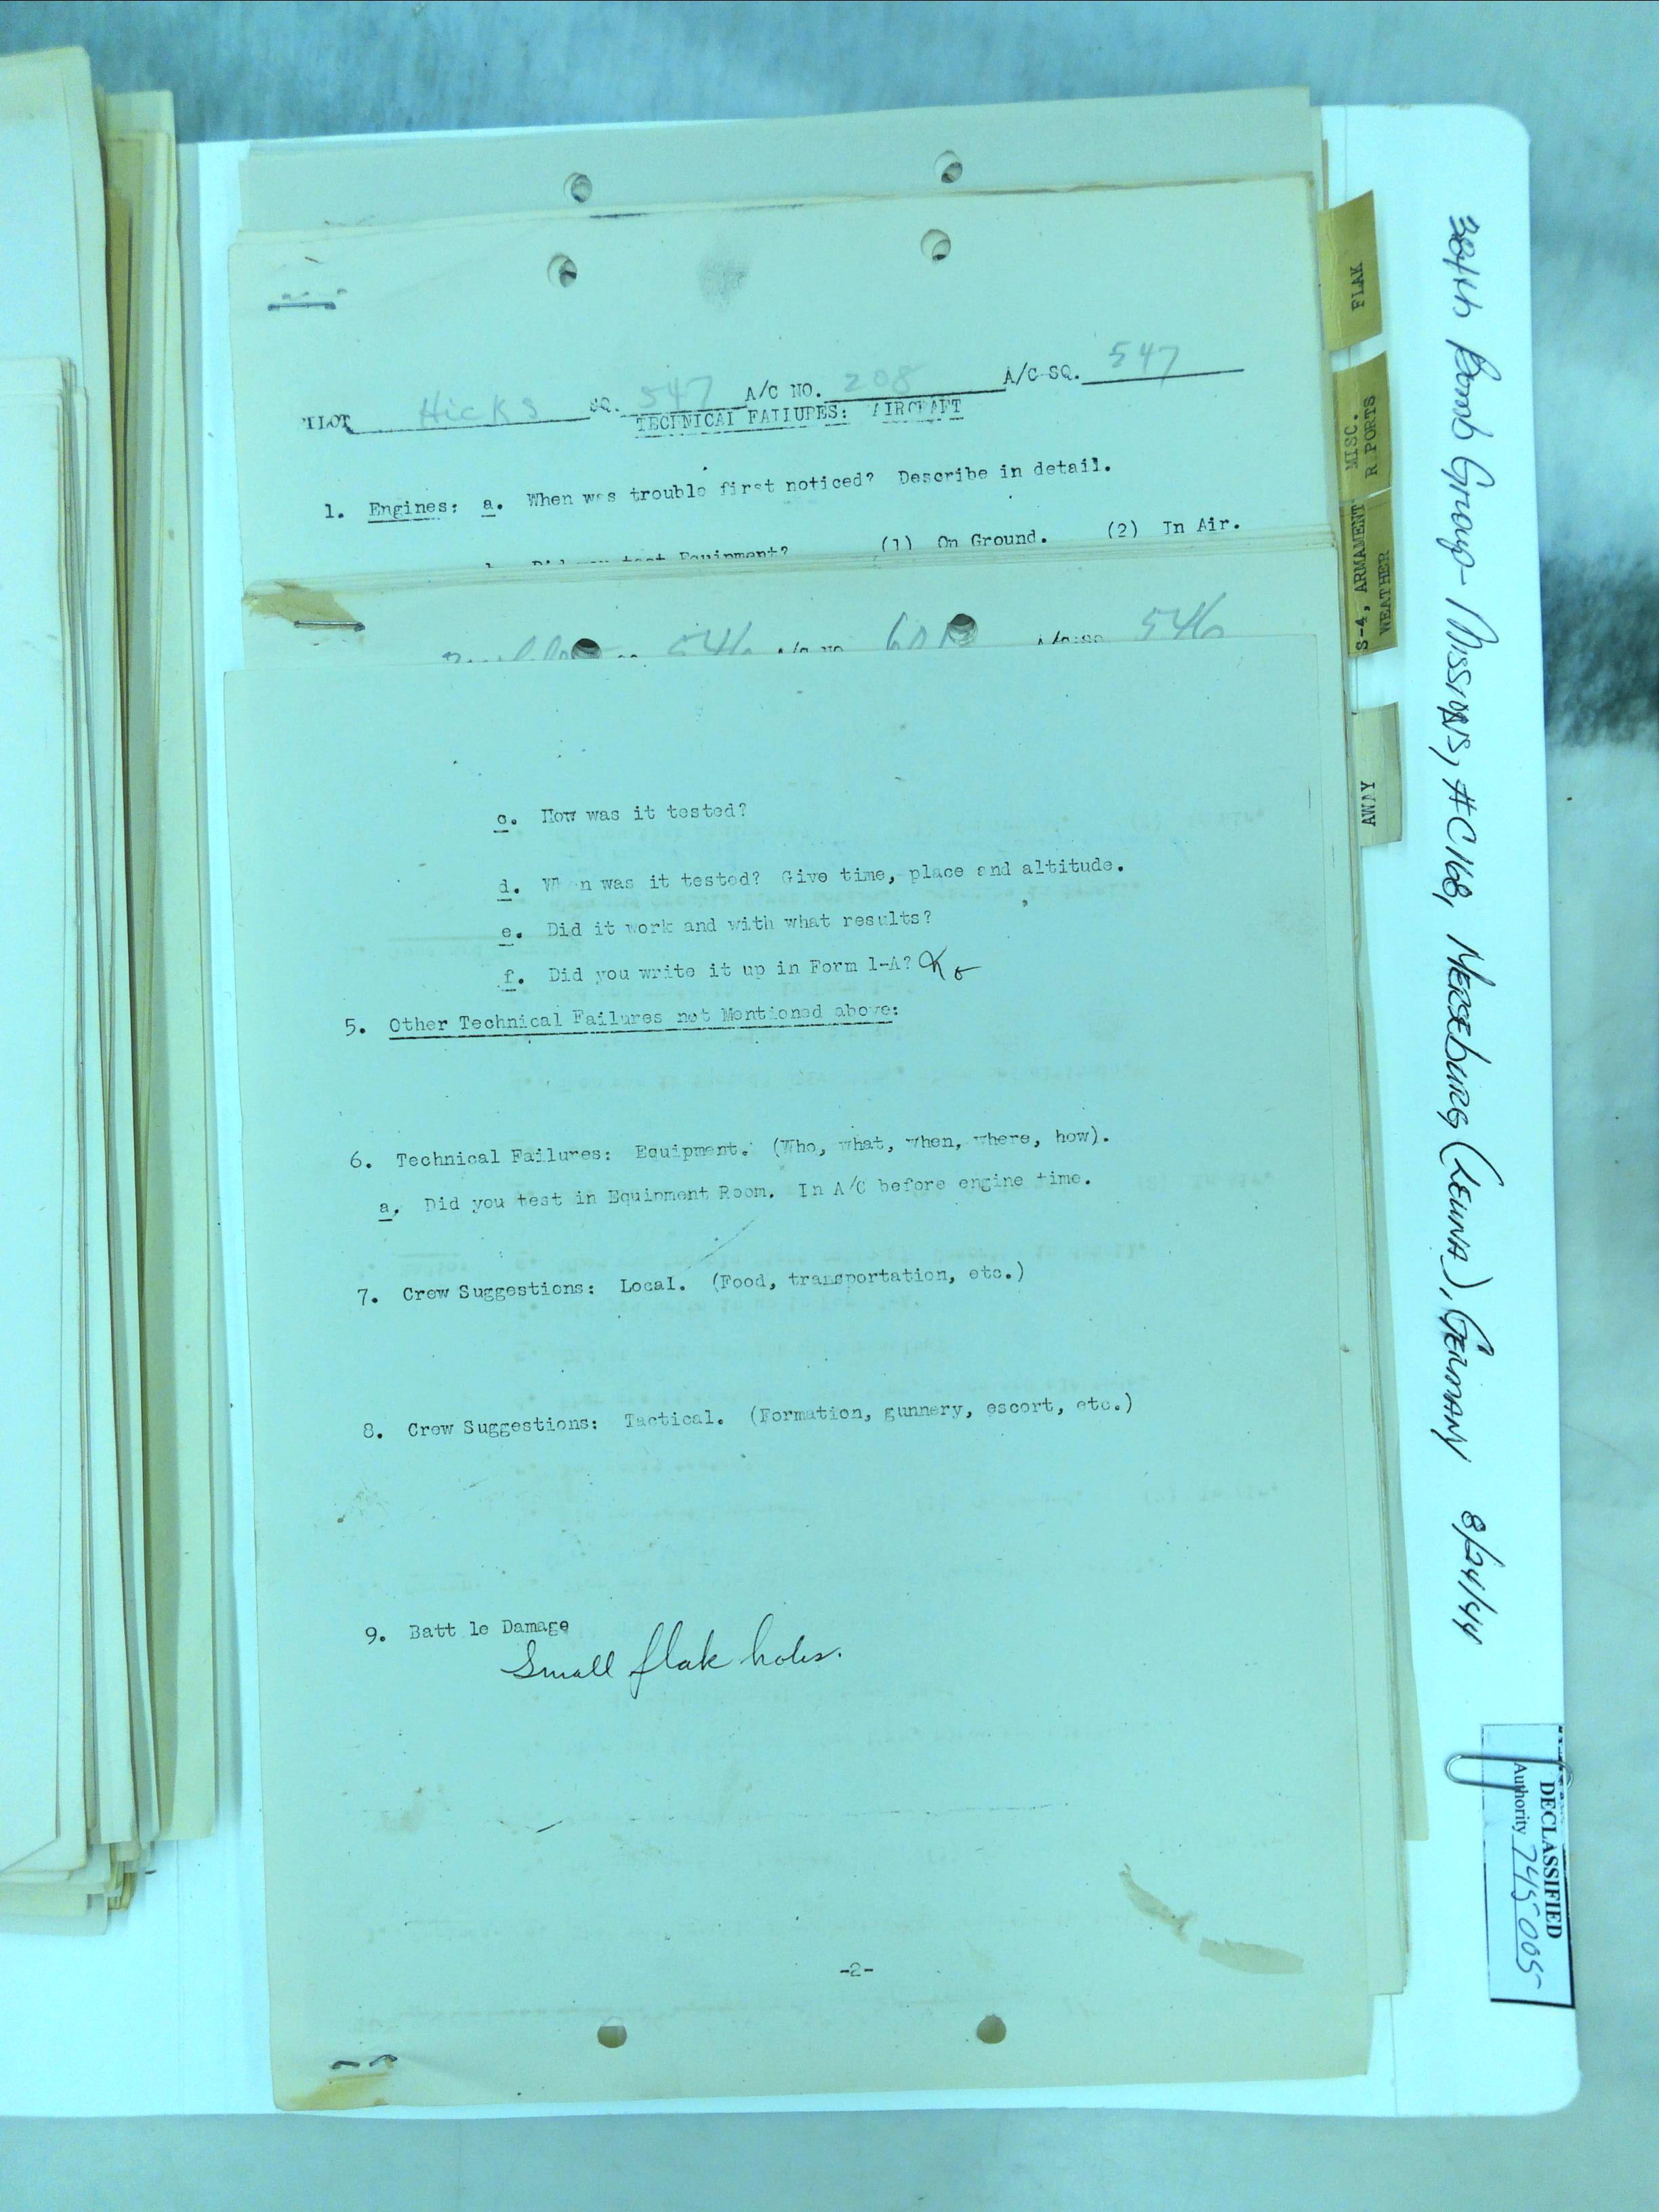 PILOT Hicks SQ. 547 A/C NO. 208 A/C SQ. 547
TECHNICAL FAILURES: AIRCRAFT
1. Engines: a. When was trouble first noticed? Describe in detail.
Did you test Equipment? (1) On Ground. (2) In Air.
546 A/C NO. 546
c. How was it tested?
d. When was it tested? Give time, place and altitude.
e. Did it work and with what results?
f. Did you write it up in Form 1-A?
5. Other Technical Failures not Mentioned above:
6. Technical Failures: Equipment. (Who, what, when, where, how).
a. Did you test in Equipment Room. In A/C before engine time.
7. Crew Suggestions: Local. (Food, transportation, etc.)
8. Crew Suggestions: Tactical. (Formation, gunnery, escort, etc.)
9. Batt le Damage
Small flak holes.
-2-
FLAK
MISC.
R PORTS
S-4, ARMAMENT
WEATHER
AWAY
384th Bomb Group - Missions, #C168, MERSEBURG (LEUNA), GERMANY 8/24/44
DECLASSIFIED
Authority 745005